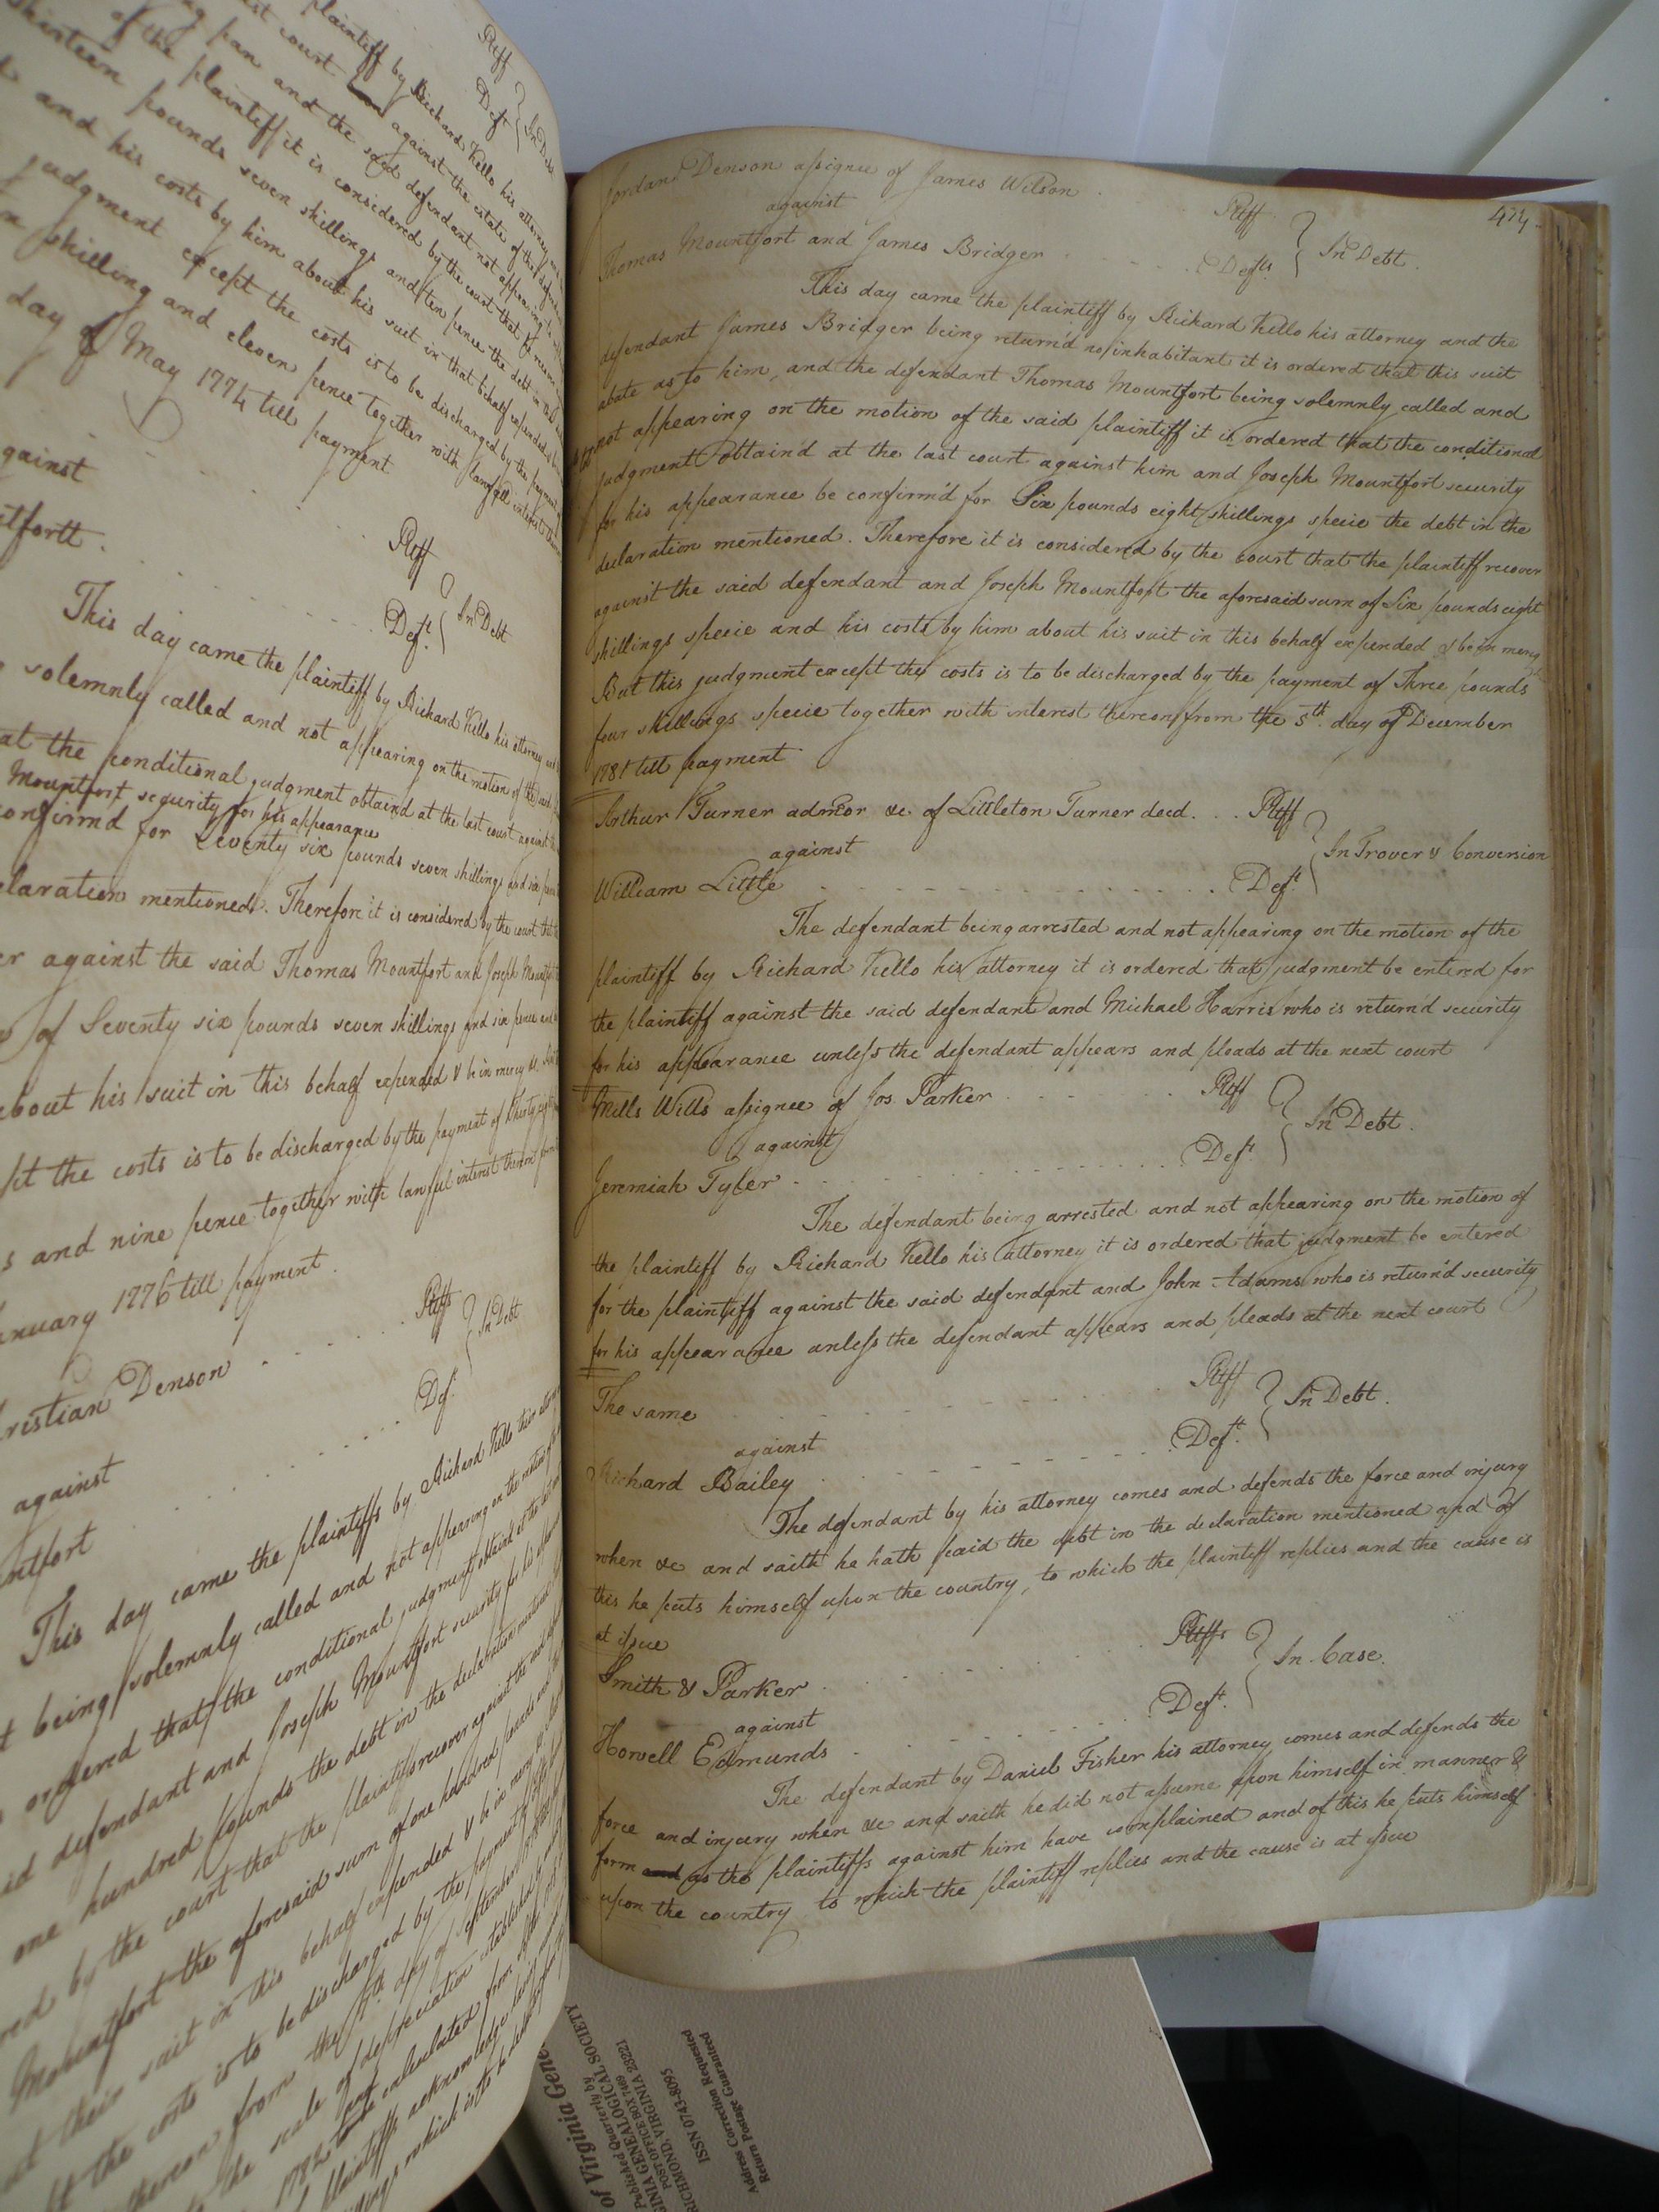 plaintiff by Richard Kello his attorney and
last court against the estate of the defendant
and the said defendant not appearing
of the plaintiff it is considered by the court that he recover
thirteen pounds seven shillings and ten pence the debt in the
and his costs by him about his suit in that behalf expended
judgment except the costs is to be discharged by the payment
shilling and eleven pence together with lawful interest
day of May 1774 till payment
Pltff
Deft
In Debt
against
Pltff
Deft.
In Debt
This day came the plaintiff by Richard Kello his attorney
solemnly called and not appearing on the motion of the said
at the conditional judgment obtaind at the last court against
Mountfort security for his appearance
confirmd for Seventy six pounds seven shillings and six pence
declaration mentioned. Therefore it is considered by the court that
against the said Thomas Mountfort and Joseph Mountfort
of Seventy six pounds seven shillings and six pence and
about his suit in this behalf expended & be in mercy &c.
the costs is to be discharged by the payment of Thirty eight
s and nine pence together with lawful interest thereon from
January 1776 till payment.
Christian Denson
Pltffs
In Debt
against
Deft.
This day came the plaintiffs by Richard Kello their attorney
being solemnly called and not appearing on the motion
ordered that the conditional judgment obtaind at the last
said defendant and Joseph Mountfort security for his appearance
one hundred pounds the debt in the declaration mentiond
by the court that the plaintiffs recover against the said
Mountfort the aforesaid sum of one hundred pounds and
their suit in this behalf expended & be in mercy &c
the costs is to be discharged by the payment of
thereon from the day of September
the scale of depreciation established
1782 calculated from
plaintiffs acknowledge
which is to be
474.
Jordan Denson assignee of James Wilson . Pltff
against
In Debt.
Thomas Mountfort and James Bridger . . . . . . Defts
This day came the plaintiff by Richard Kello his attorney and the
defendant James Bridger being returnd no inhabitant it is ordered that this suit
abate as to him, and the defendant Thomas Mountfort being solemnly called and
not appearing on the motion of the said plaintiff it is ordered that the conditional
judgment obtaind at the last court against him and Joseph Mountfort security
for his appearance be confirm'd for Six pounds eight shillings specie the debt in the
declaration mentioned. Therefore it is considered by the court that the plaintiff recover
against the said defendant and Joseph Mountfort the aforesaid sum of Six pounds eight
shillings specie and his costs by him about his suit in this behalf expended & be in mercy
But this judgment except the costs is to be discharged by the payment of Three pounds
four shillings specie together with interest thereon from the 5th. day of December
1781 till payment
Arthur Turner admor &c. of Littleton Turner decd. . . Pltff
against
In Trover & Conversion
William Little . . . . . . Deft.
The defendant being arrested and not appearing on the motion of the
plaintiff by Richard Kello his attorney it is ordered that judgment be entered for
the plaintiff against the said defendant and Michael Harris who is return'd security
for his appearance unless the defendant appears and pleads at the next court
Mills Wills assignee of Jos. Parker . . . . . . Pltff
against
In Debt.
Jeremiah Tyler . . . . . . Deft.
The defendant being arrested and not appearing on the motion of
the plaintiff by Richard Kello his attorney it is ordered that judgment be entered
for the plaintiff against the said defendant and John Adams who is return'd security
for his appearance unless the defendant appears and pleads at the next court
The same . . . . . . Pltff
against
In Debt.
Richard Bailey . . . . . . Deft.
The defendant by his attorney comes and defends the force and injury
when &c and saith he hath paid the debt in the declaration mentioned and of
this he puts himself upon the country, to which the plaintiff replies and the cause is
at issue
Smith & Parker . . . . . . Pltffs
against
In Case.
Howell Edmunds . . . . . . Deft.
The defendant by Daniel Fisher his attorney comes and defends the
force and injury when &c and saith he did not assume upon himself in manner &
form and as the plaintiffs against him have complained and of this he puts himself
upon the country to which the plaintiff replies and the cause is at issue
of Virginia Gene
Published Quarterly by
GINIA GENEALOGICAL SOCIETY
POST OFFICE BOX 7469
RICHMOND, VIRGINIA 23221
ISSN 0743-8095
Address Correction Requested
Return Postage Guaranteed